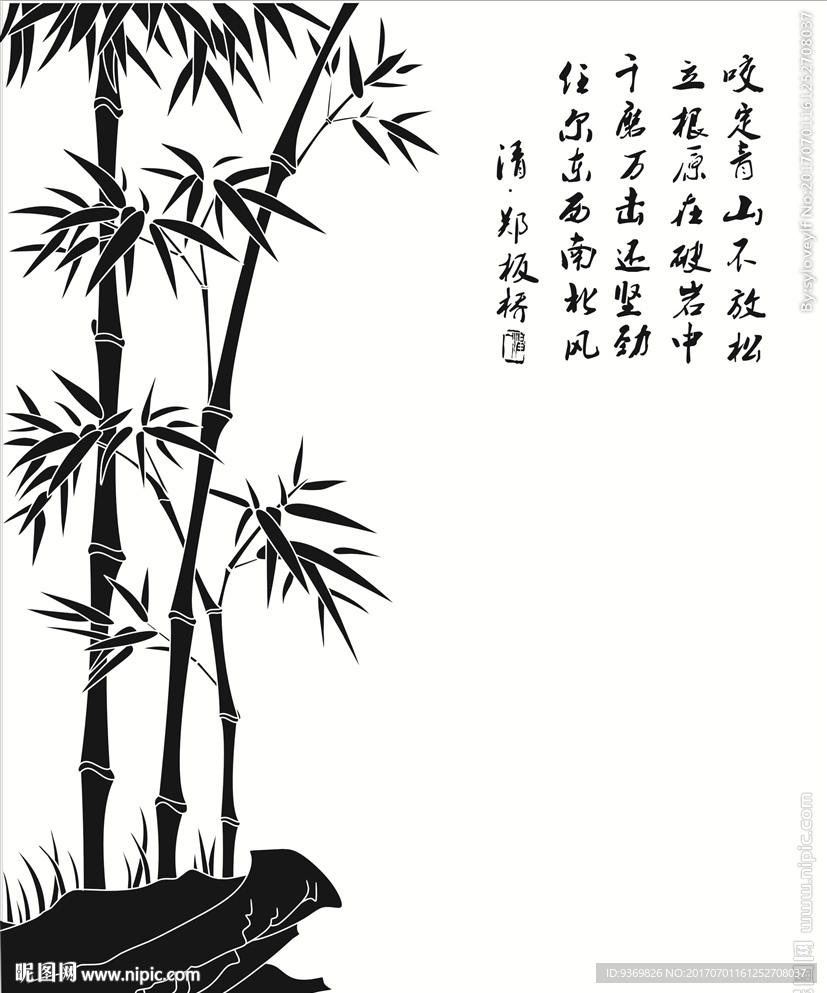 咬定青山不放松
立根原在破岩中
千磨万击还坚劲
任尔东西南北风
清·郑板桥
By:syloveyif No:20170701161252708037
www.nipic.com
昵图网 www.nipic.com
ID:9369826 NO:20170701161252708037